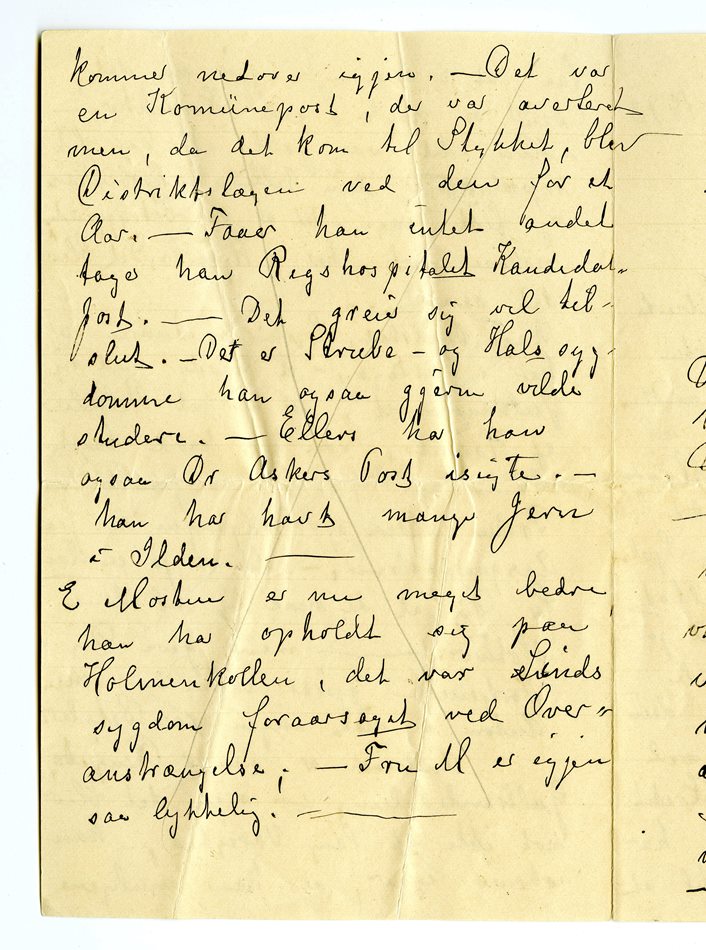 kommer nedover igjen. — Det var
en Komünepost, der var averteret
men, da det kom til Stykket, blev
Distriktslægen ved den for et
Aar. — Faaer han intet andet
tager han Rigshospitalet Kandidat-
post. — Det greier sig vel til-
slut. — Det er Strube - og Hals syg-
domme han ogsaa gjerne vilde
studere. — Ellers ha han
ogsaa Dr Askers Post isigte. —
han har havt mange Jern
i Ilden. —
E Mosten er nu meget bedre
han ha opholdt sig paa
Holmenkollen, det var Sinds
sygdom foraarsaget ved Over-
anstrængelse; — Fru M er igjen
saa lykkelig. —